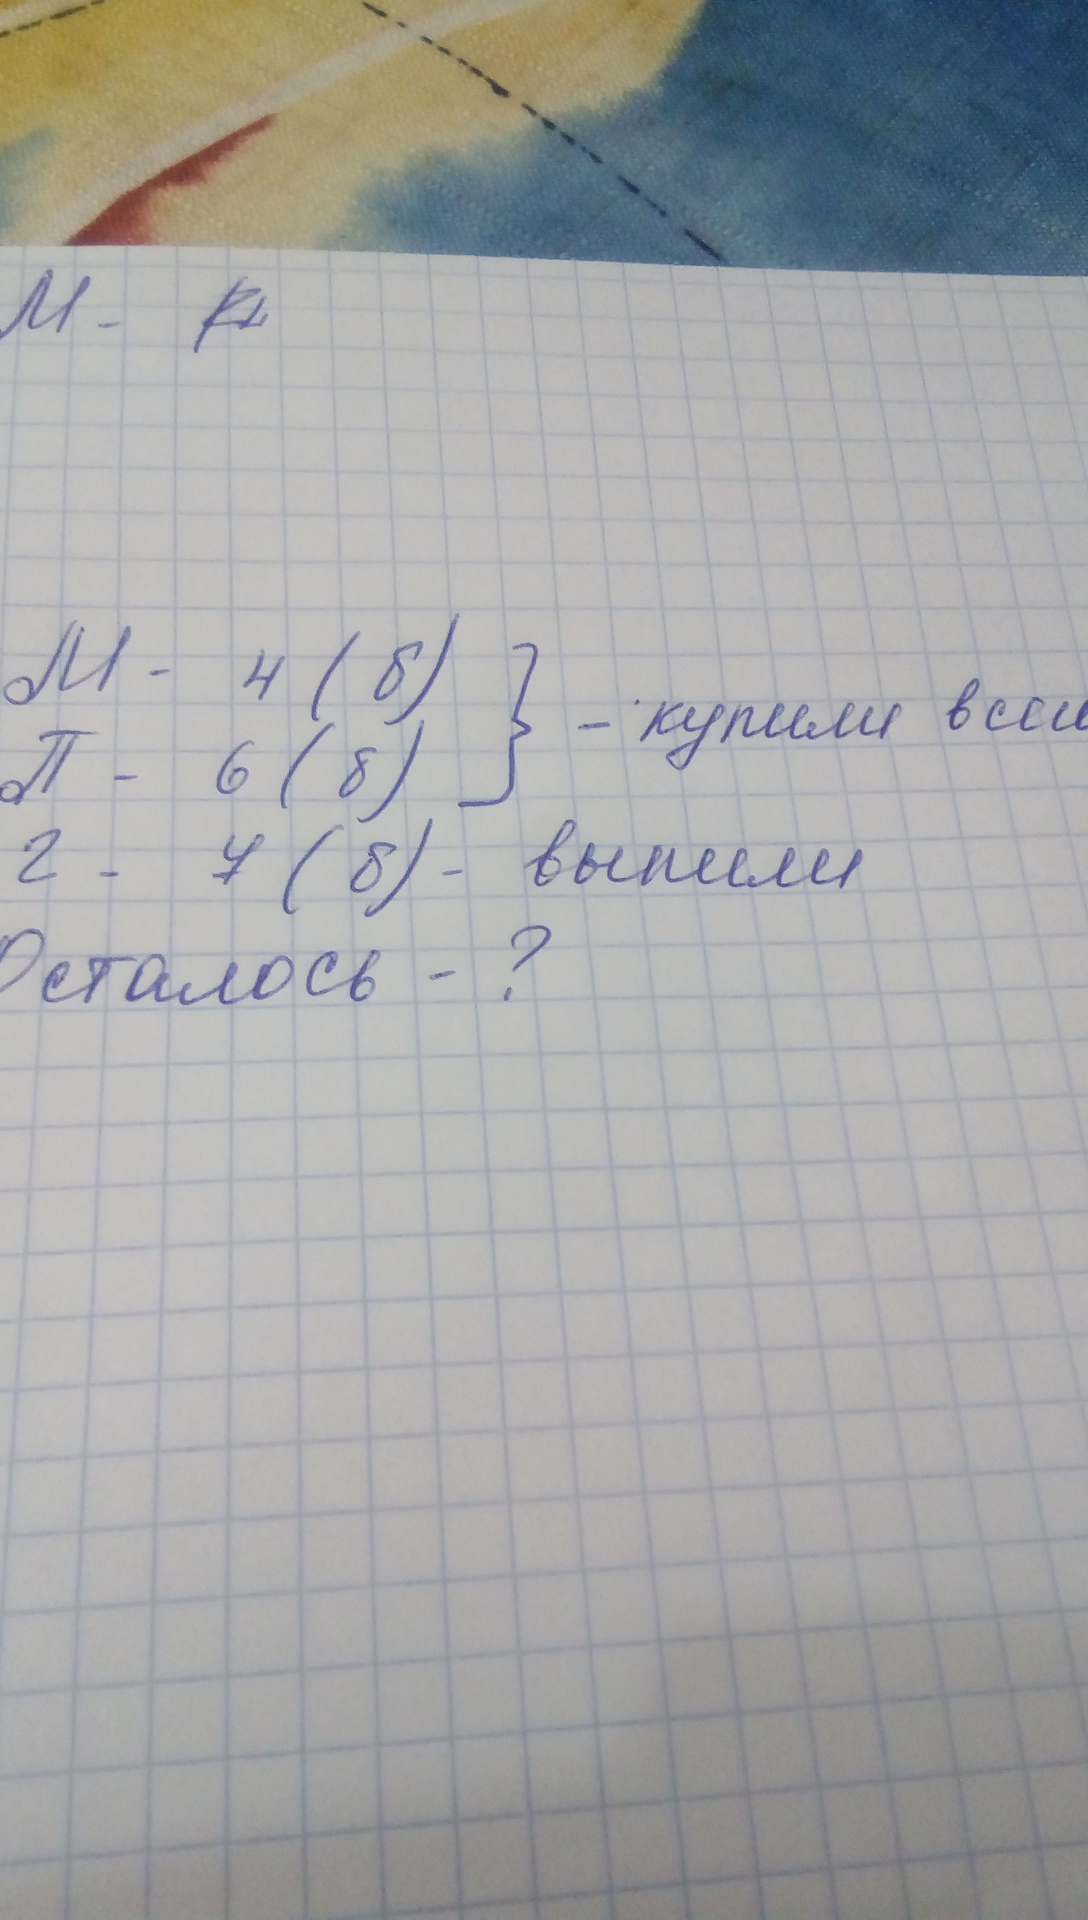 М -
М - 4 (б)
П - 6 (б) } - купили
Г - 7 (б) - выпили
Осталось - ?